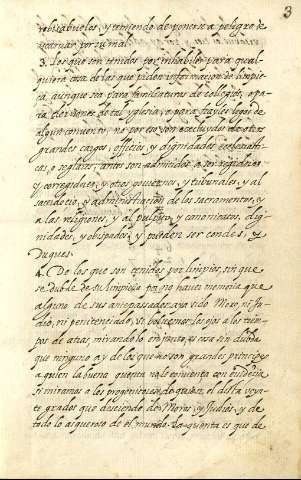 3
rebisabuelos, y temiendo de ponerse a peligro de
3. Los que son tenidos por inhabiles para qual
quiera cosa de las que piden informacion de limpie
ça, aunque sea para familiaturas de collegios, o pa
algun convento, no por eso son excluydos de otros
grandes cargos, officios, y dignidades ecclesiasti
cas o seglares, antes son admitidos a ser regidores
y corregidores, y otros goviernos, y tribunales, y al
sacerdocio, y administracion de los sacramentos, y
a las religiones, y al pulpito, y canonicatos, dig
nidades, y obispados, y pueden ser condes, y
Duques.
4. De los que son tenidos por limpios, sin que
se dubde de su limpieza pq no haze memoria que
alguno de sus antepasados aya sido Moro, ni Ju
dio, ni penitenciado, si bolvemos los ojos a los tiem
pos de atras mirandolo en junto, es cosa sin dubda
que ninguno ay de los que no son grandes principes
a quien la buena quenta no le convenza con evidencia
si miramos a los progenitores de quien el dista veyn
te grados que desciende de Moros, y Judios, y de
todo lo asqueroso de el mundo. La quenta es que de